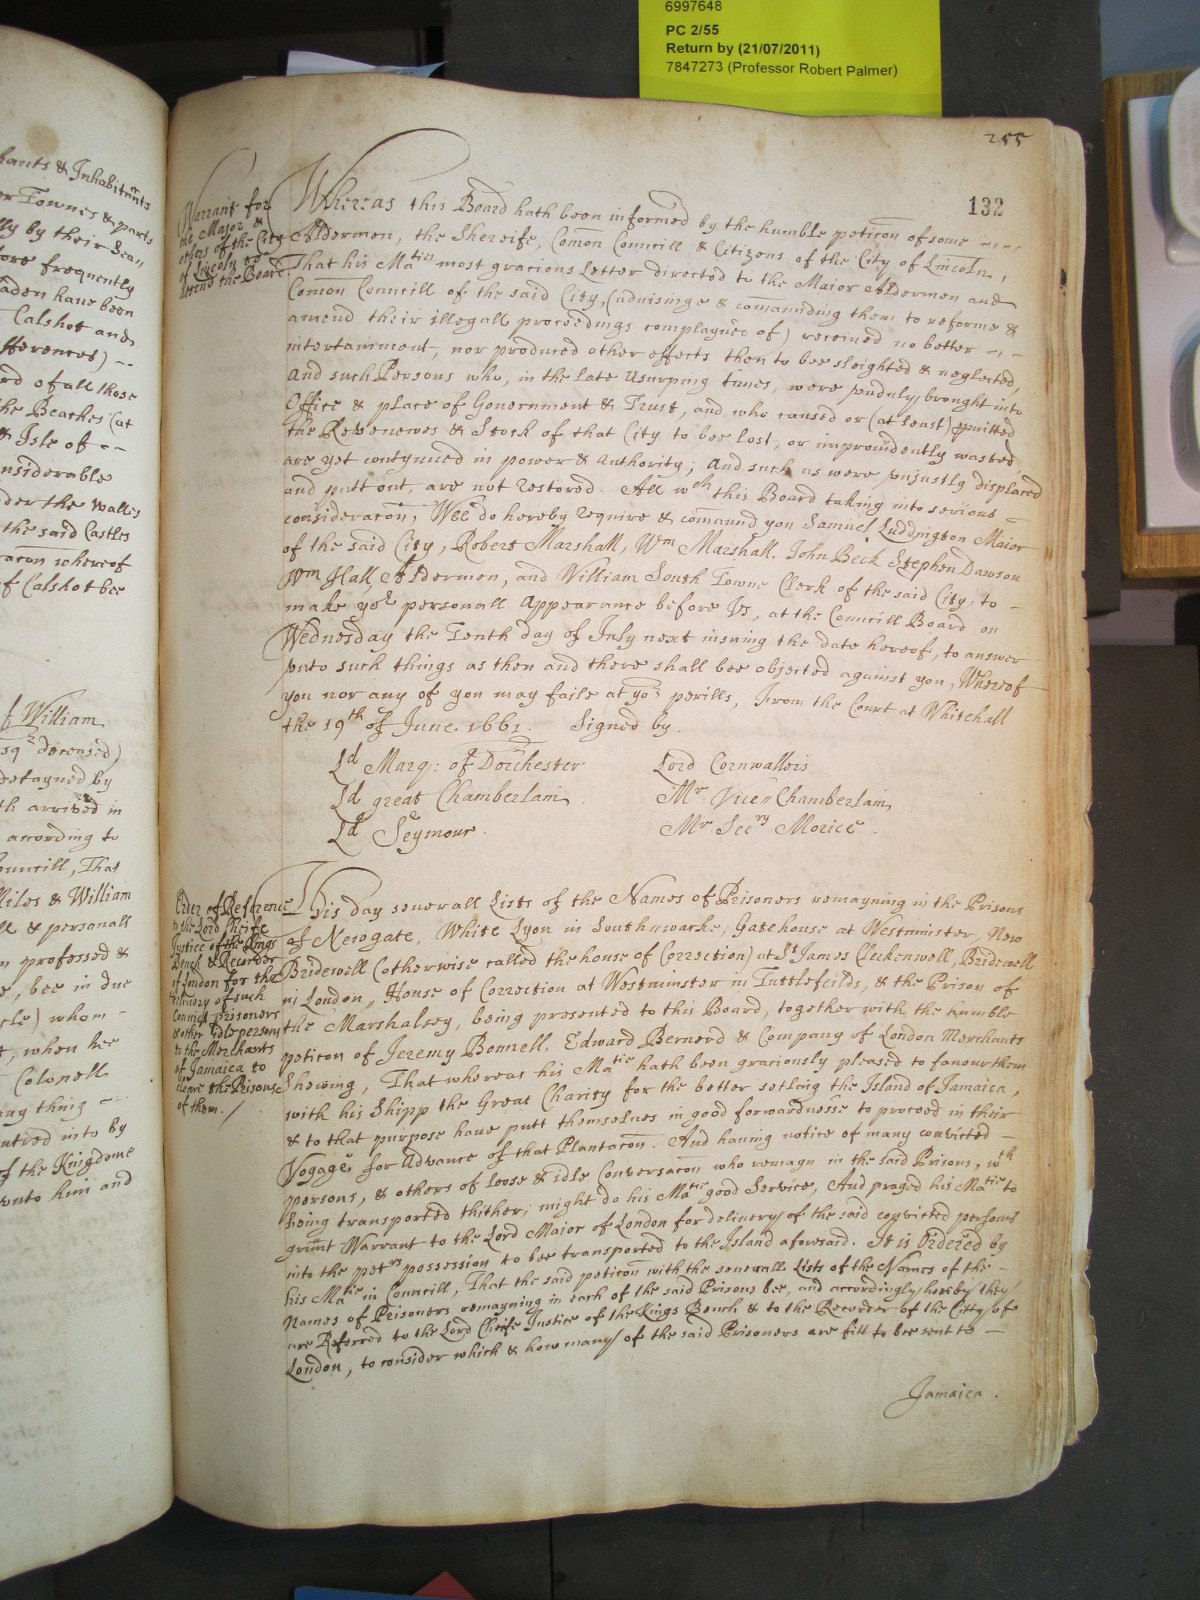 6997648
PC 2/55
Return by (21/07/2011)
7847273 (Professor Robert Palmer)
255
132
Warrant for
the Major &
others of the City
of Lincoln to
attend the Board
Whereas this Board hath been informed by the humble peticon of some
Aldermen, the Shereife, Comon Councill & Citizens of the City of Lincoln,
That his Ma^ties most gracious Letter directed to the Maior Aldermen and
Comon Councill of the said City, (aduisinge & comanding them to reforme &
amend their illegall proceedings complayned of) receiued no better
intertainment, nor produced other effects then to bee sleighted & neglected,
And such Persons who, in the late Usurping times, were vnduly brought into
Office & place of Gouernment & Trust, and who caused or (at least) pmitted
the Revenewes & Stock of that City to bee lost, or improuidently wasted,
are yet contynued in power & authority; And such as were vniustly displaced
and putt out, are not restored. All w^ch this Board taking into serious
consideracon, Wee do hereby require & comannd you Samuel Luddington Maior
of the said City, Robert Marshall, W^m Marshall. John Beck Stephen Dawson
W^m Hall, Aldermen, and William South Towne Clerk of the said City, to
make yo^r personall Appearance before Vs, at the Councill Board on
Wednesday the Tenth day of July next insuing the date hereof, to answer
vnto such things as then and there shall bee obiected against you, Whereof
you nor any of you may faile at yo^r perills, From the Court at Whitehall
the 19^th of June 1661. Signed by.
L^d Marq: of Dorchester
Lord Cornwallis
L^d great Chamberlain
M^r Vice Chamberlain
L^d Seymour.
M^r Sec^ry Morice.
Order of Reference
to the Lord Cheife
Justice of the Kings
Bench & Recorder
of London for the
deliuery of such
Convict prisoners
& other idle persons
to the Merchants
of Jamaica to
cleare the Prisons
of them.
This day seuerall Lists of the Names of Prisoners remayning in the Prisons
of Newgate, White Lyon in Southwarke, Gatehouse at Westminster, New
Bridewell (otherwise called the house of Correction) at S^t James Clerkenwell, Bridewell
in London, House of Correction at Westminster in Tuttlefeilds, & the Prison of
the Marshalsey, being presented to this Board, together with the humble
peticon of Jeremy Bonnell, Edward Bernerd & Company of London Merchants
Shewing, That whereas his Ma^tie hath been graciously pleased to fauour them
with his Shipp the Great Charity for the better setling the Island of Jamaica,
& to that purpose haue putt themselues in good forwardnesse to proceed in their
Voyage for Advance of that Plantacon. And hauing notice of many convicted
persons, & others of loose & idle Conversacon who remayn in the said Prisons, w^ch
being transported thither, might do his Ma^tie good Service, And prayed his Ma^tie to
graunt Warrant to the Lord Maior of London for deliuery of the said convicted persons
into the pet^rs possession to bee transported to the Island aforesaid. It is Ordered by
his Ma^tie in Councill, That the said peticon with the seuerall Lists of the Names of the
Names of Prisoners remayning in each of the said Prisons bee, and accordingly hereby they
are Referred to the Lord Cheife Justice of the Kings Bench & to the Recorder of the Citty of
London, to consider which & how many of the said Prisoners are fitt to bee sent to
Jamaica.
hants & Inhabitants
or Townes & parts
ly by their Sea
ore frequently
aden haue been
Calshot and
fferences)
rd of all those
he Beaches (at
& Isle of
nsiderable
der the Walls
the said Castles
racon whereof
f Calshot bee
f William
sq^r deceased)
detayned by
th arrived in
according to
ouncill, That
Miles & William
ll & personall
n professed &
e, bee in due
cle) whom
t, when hee
Colonell
ny thing
ntred into by
f the Kingdome
vnto him and